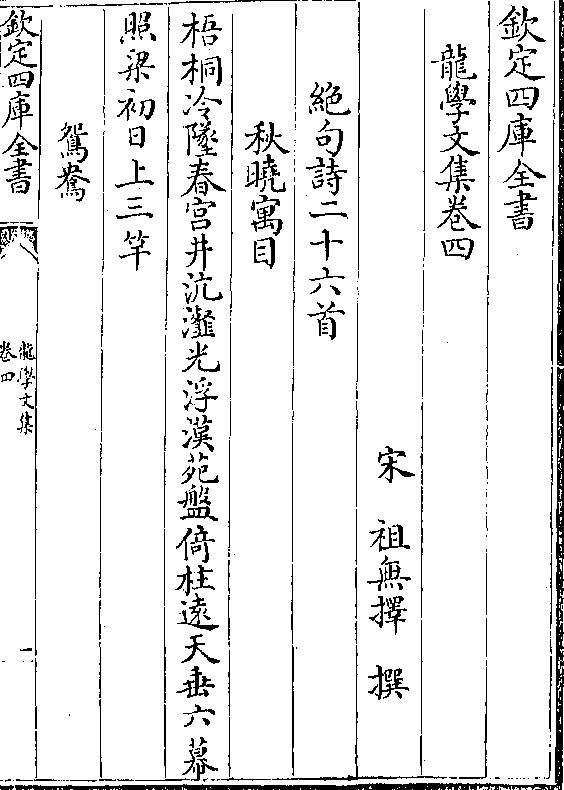 欽定四庫全書
龍學文集卷四
宋 祖無擇 撰
絶句詩二十六首
秋曉寓目
梧桐冷墜春宫井沆瀣光浮漢苑盤倚柱遠天垂六幕
照梁初日上三竿
鴛鴦
欽定四庫全書
龍學文集
卷四
一